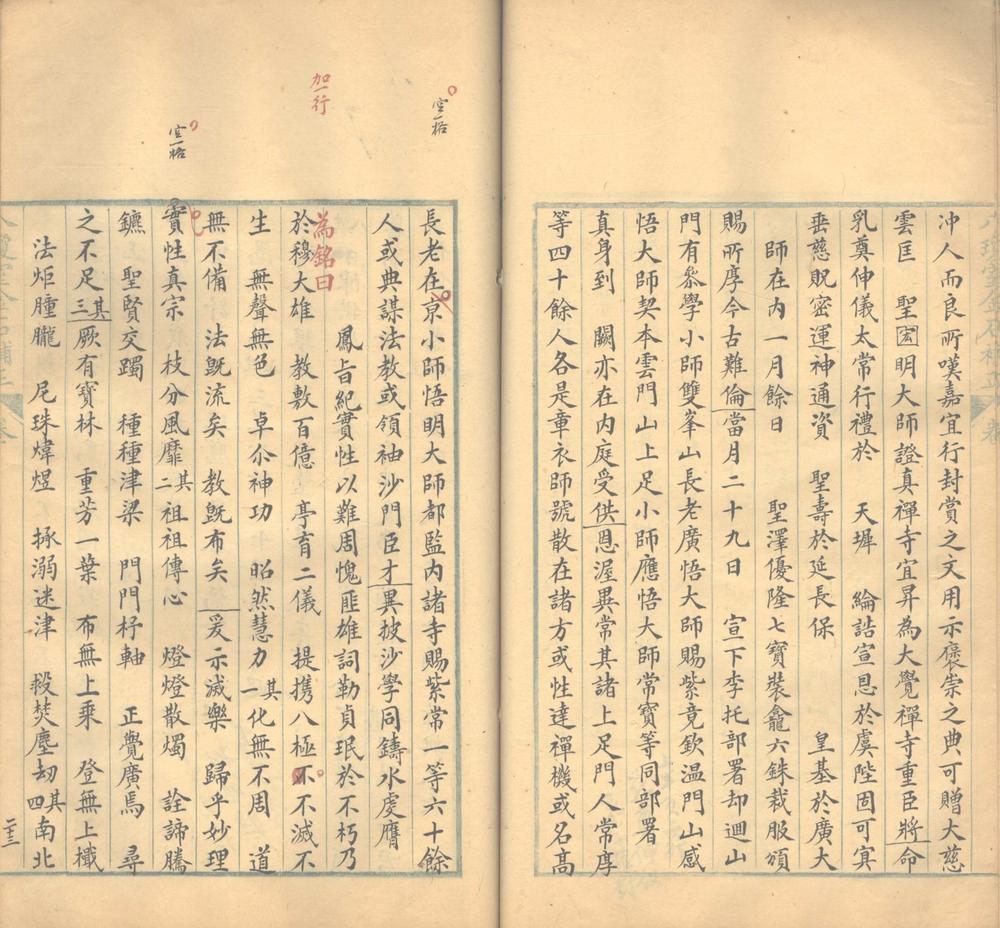 冲人而良所嘆嘉宜行封賞之文用示褒崇之典可贈大慈
雲匡　聖宏明大師證真禪寺宜昇為大覺禪寺重臣將命
乳奠伸儀太常行禮於　天墀　綸誥宣恩於虞陛固可寘
垂慈貺密運神通資　聖壽於延長保　皇基於廣大
師在内一月餘日　聖澤優隆七寶裝龕六銖裁服頒
賜所序今古難倫當月二十九日　宣下李托部署却迴山
門有叅學小師雙峯山長老廣悟大師賜紫竟欽温門山感
悟大師契本雲門山上足小師應悟大師常寶等同部署
真身到　闕亦在内庭受供恩渥異常其諸上足門人常厚
等四十餘人各是章衣師號散在諸方或性達禪機或名高
長老在京小師悟明大師都監内諸寺賜紫常一等六十餘
人或典謀法教或領袖沙門臣才異披沙學同鑄水虔膺
鳳旨紀實性以難周愧匪雄詞勒貞珉於不朽乃
為銘曰
於穆大雄　教敷百億　亭育二儀　提攜八極　不不滅不
生　無聲無色　卓尒神功　昭然慧力其一化無不周　道
無不備　法既流矣　教既布矣　爰示滅樂　歸乎妙理
實性真宗　枝分風靡其二祖祖傳心　燈燈散燭　詮諦騰
鑣　聖賢交躅　種種津梁　門門杼軸　正覺廣焉　尋
之不足其三厥有寶林　重芳一葉　布無上乘　登無上襳
法炬朣朧　尼珠煒煜　拯溺迷津　救焚塵刼其四南北
二十三
空一格
加一行
空一格